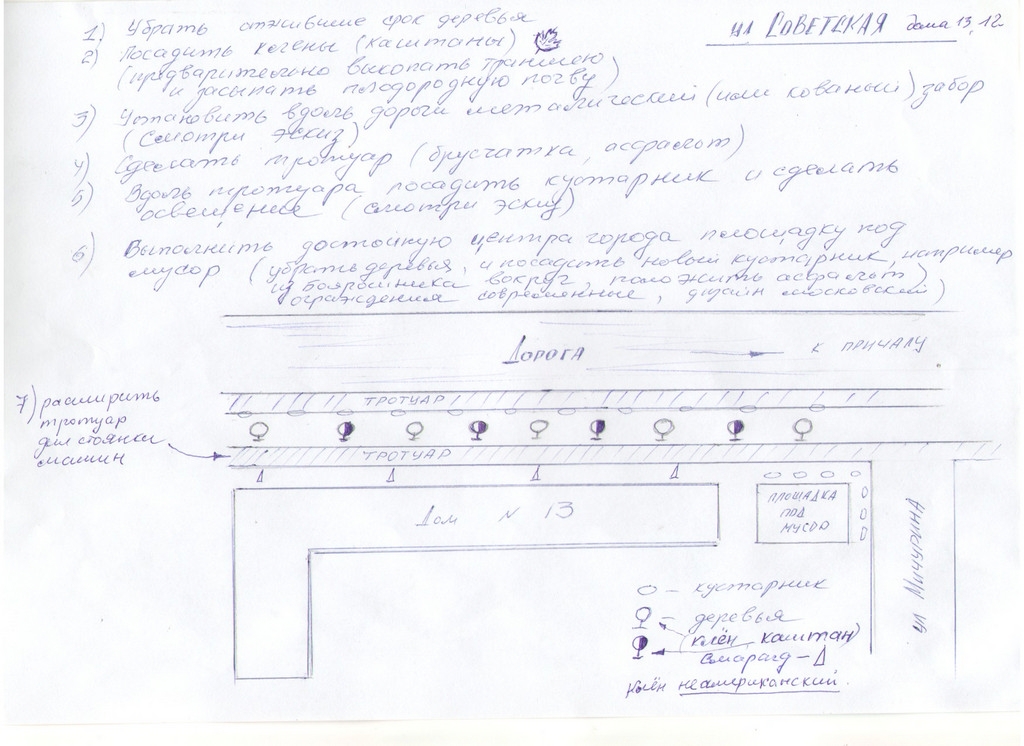 ул Советская дома 13, 12
1) Убрать отжившие срок деревья
2) Посадить клены (каштаны)
(предварительно выкопать траншею
и засыпать плодородную почву)
3) Установить вдоль дороги металлический (или кованый) забор
(смотри эскиз)
4) Сделать тротуар (брусчатка, асфальт)
5) Вдоль тротуара посадить кустарник и сделать
освещение (смотри эскиз)
6) Выполнить достойную центра города площадку под
мусор (убрать деревья, и посадить новый кустарник, например
из боярышника вокруг, положить асфальт)
ограждения современные, дизайн московский)
Дорога
к причалу
7) расширить
тротуар
для стоянки
машин
тротуар
тротуар
Дом N 13
площадка
под
мусор
ул Мичурина
- кустарник
- деревья
(клён, каштан)
смарагд -
клён неамериканский.